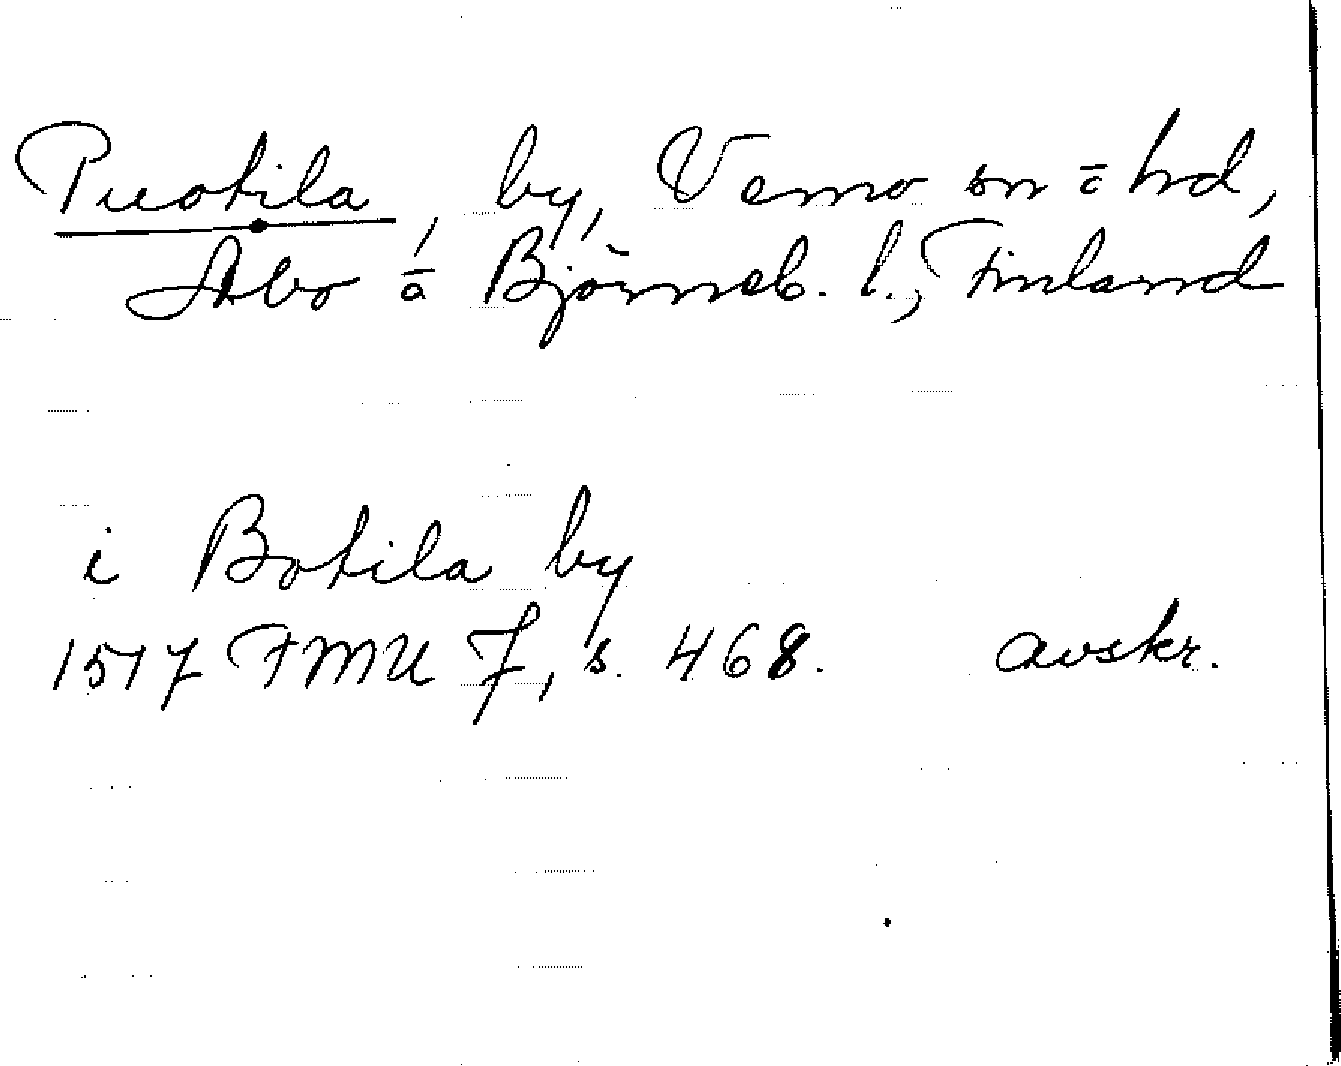 Puotila, by, Vemo sn o hd,
Åbo o Björneb. l., Finland
i Botila by
1517 FMU 7, s. 468. avskr.